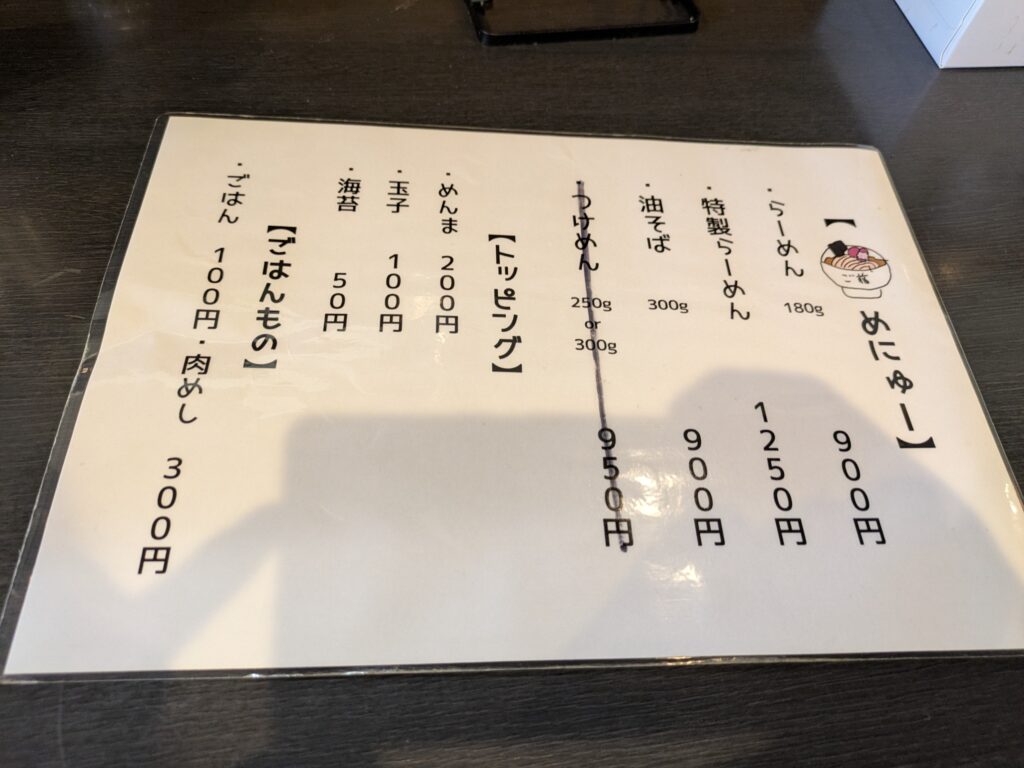 【めにゅー】
ご龍
・らーめん 180g 900円
・特製らーめん 1250円
・油そば 300g 900円
・つけめん 250g or 300g 950円
【トッピング】
・めんま 200円
・玉子 100円
・海苔 50円
【ごはんもの】
・ごはん 100円・肉めし 300円